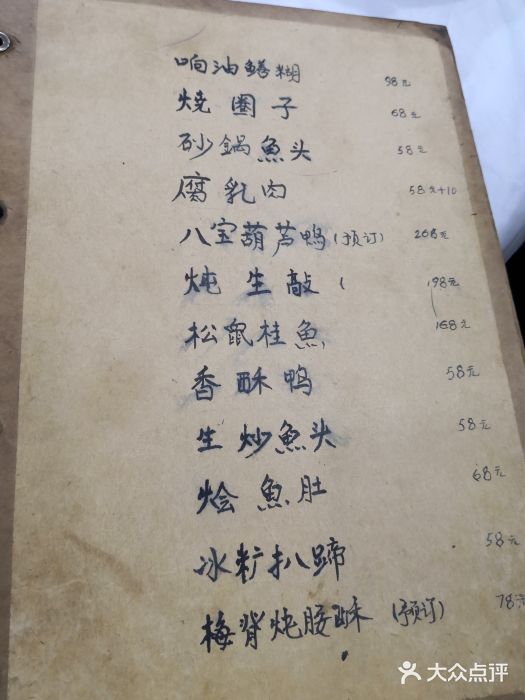 响油鳝糊 58元
烧圈子 68元
砂锅魚头 58元
腐乳肉 58元+10
八宝葫芦鸭(预订) 268元
炖生敲( 198元
松鼠桂魚 168元
香酥鸭 58元
生炒魚头 58元
烩魚肚 68元
冰籵扒蹄 58元
梅脊炖腰酥(预订) 78元
大众点评